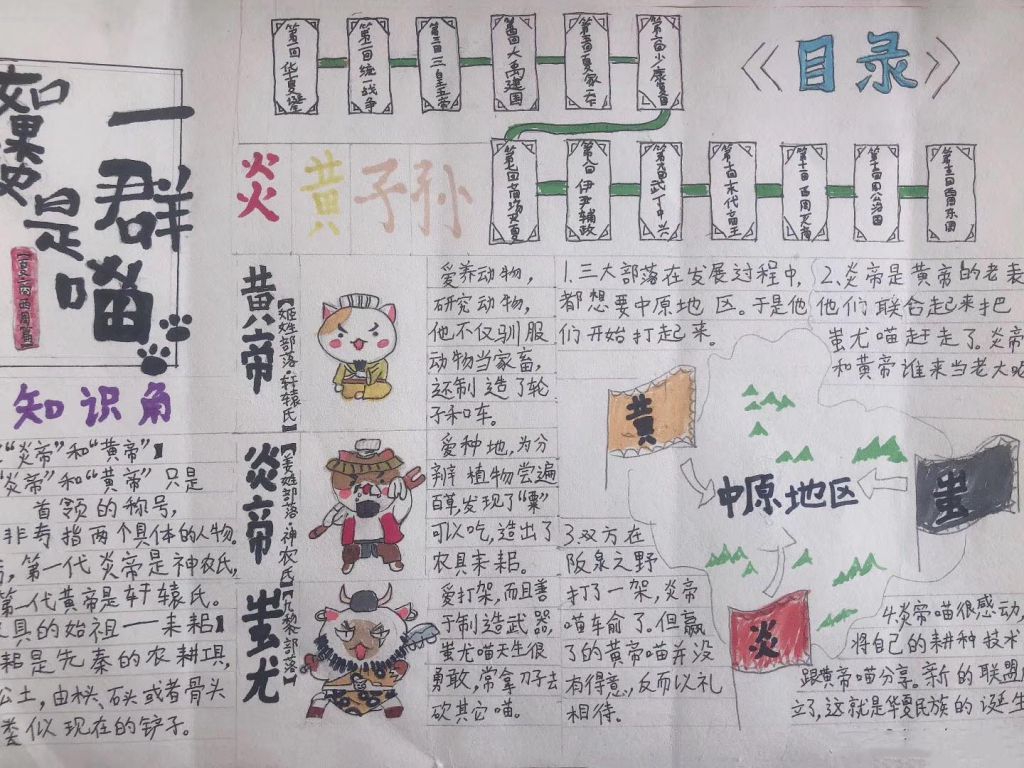 如果
历史
是
一群
喵
《目录》
第一回 华夏诞生
第二回 统一战争
第三回 三皇五帝
第四回 大禹建国
第五回 夏家天下
第六回 少康复国
第七回 商汤灭夏
第八回 伊尹辅政
第九回 武丁中兴
第十回 末代商王
第十一回 西周灭商
第十二回 周公治国
炎黄子孙
黄帝
【姬姓部落·轩辕氏】
爱养动物，
研究动物，
他不仅驯服
动物当家畜，
还制造了轮
子和车。
炎帝
【姜姓部落·神农氏】
爱种地，为分
辩植物尝遍
百草，发现了“粟”
可以吃，造出了
农具耒耜。
蚩尤
【九黎部落】
爱打架，而且善
于制造武器，
蚩尤喵天生很
勇敢，常拿刀子去
砍其它喵。
1.三大部落在发展过程中，
都想要中原地区。于是他
们开始打起来。
2.炎帝是黄帝的老表
他们联合起来把
蚩尤喵赶走了。炎帝
和黄帝谁来当老大呢
黄
蚩
炎
中原地区
3.双方在
阪泉之野
打了一架，炎帝
喵车俞了。但赢
了的黄帝喵并没
有得意，反而以礼
相待。
4.炎帝喵很感动，
将自己的耕种技术
跟黄帝喵分享。新的联盟
立了，这就是华夏民族的诞生
知识角
“炎帝”和“黄帝”】
“炎帝”和“黄帝”只是
首领的称号，
非专指两个具体的人物。
，第一代炎帝是神农氏，
第一代黄帝是轩辕氏。
具的始祖——耒耜】
耜是先秦的农耕工具，
土，由木头、石头或者骨头
类似现在的铲子。